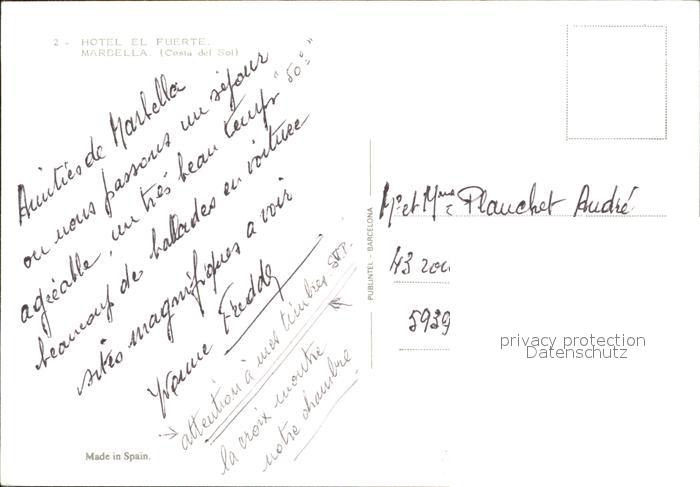 2 - HOTEL EL FUERTE.
MARBELLA. (Costa del Sol)
Amitiés de Marbella
ou nous passons un séjour
agréable, un très beau temps "50°"
beaucoup de ballades en voiture
sites magnifiques a voir
Yvonne Freddy
attention à mes timbres. SVP.
la croix montre
notre chambre.
Made in Spain.
PUBLINTEL - BARCELONA
Mr et Mme Planchet André
43
5939
privacy protection
Datenschutz